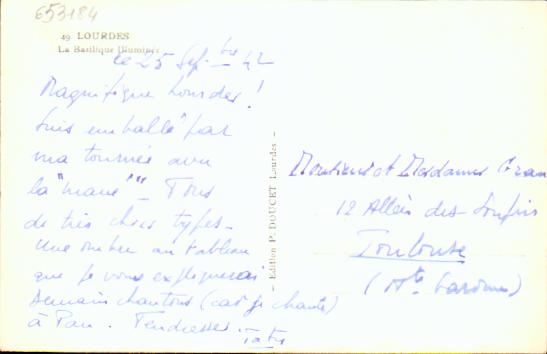 653184
49. LOURDES
La Basilique Illuminée
le 25 Sept.bre 42
Magnifique Lourdes!
Suis emballé par
ma tournée avec
la "mane" - Tous
de très chics types -
Une ombre au tableau
que je vous expliquerai
Demain chantons (car je chante)
à Pau. Tendresses.
Edition P. DOUCET Lourdes
Monsieur et Madame Gran
12 Allées des
Toulouse
(Hte Garonne)